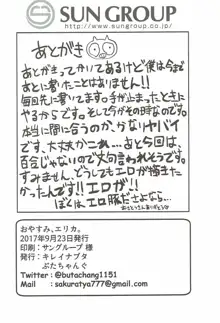 SUN GROUP
http://www.sungroup.co.jp/
あとがき
あとがきってかいてあるけど僕は今まで
あとに書いたことはありません!!
毎回先に書いてます。手が止まったときに
やるからです。そして今がその時なのです。
本当に間に合うのか、かなりヤバイ
です、大丈夫かこれ…、あと今回は
百合じゃないので文句言われそうです。
すみません、どうしてもエロが描きた
かったんです!!エロが!!
ぼくは、エロ豚ださよなら…
おやすみ、エリカ。
2017年9月23日発行
印刷:サングループ 様
発行:キレイナブタ
ぶたちゃんぐ
Twitter : @butachang1151
Mail : sakuratya777@gmail.com